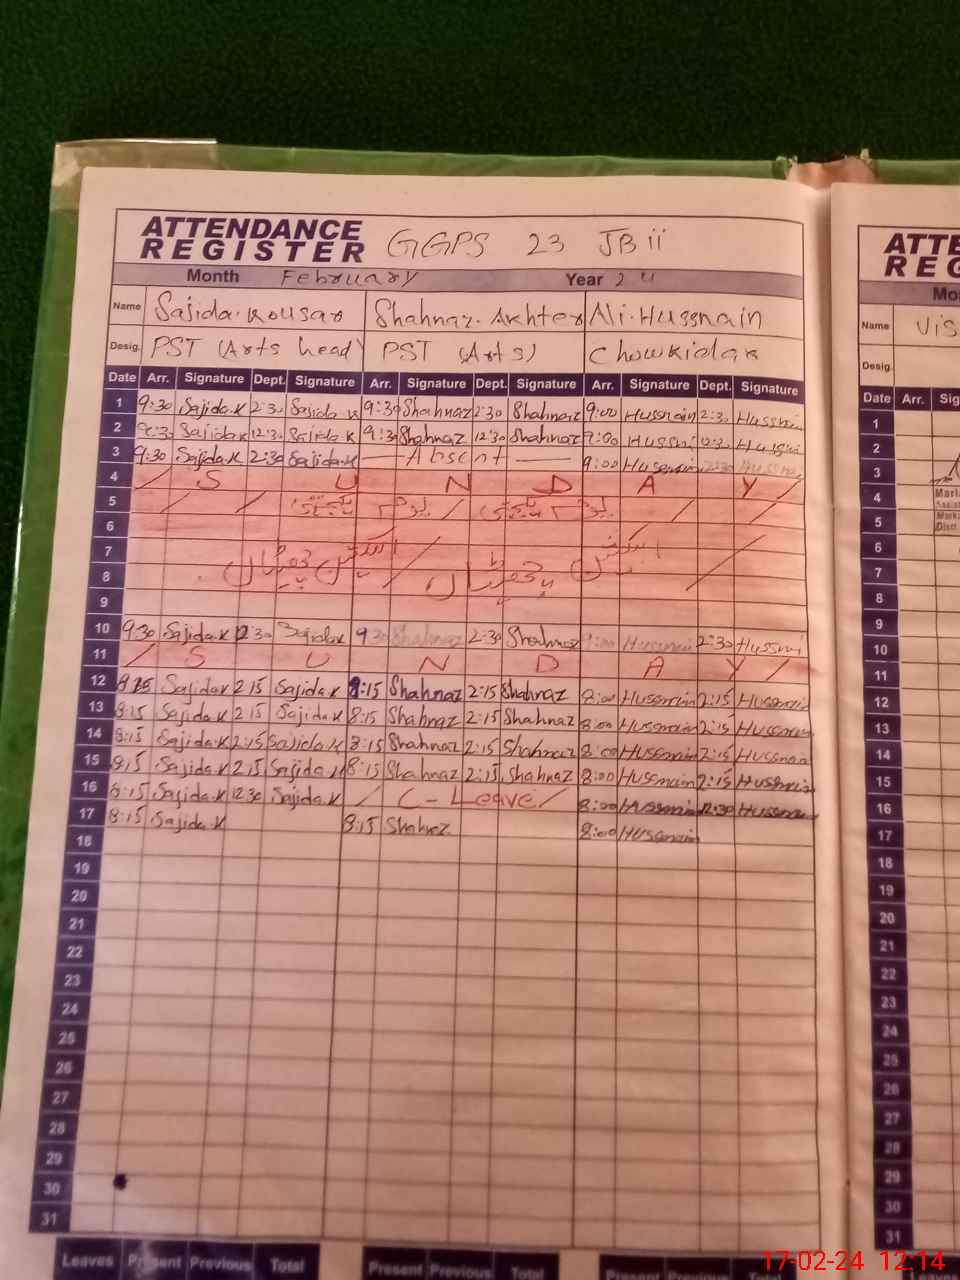 ATTENDANCE REGISTER GGPS 23 JB ii
Month February Year 24
Name Sajida. Kousar Shahnaz. Akhter Ali. Hussnain
Desig. PST (Arts head) PST (Arts) Chowkidar
Date Arr. Signature Dept. Signature Arr. Signature Dept. Signature Arr. Signature Dept. Signature
1 9:30 Sajida.K 2:30 Sajida K 9:30 Shahnaz 2:30 Shahnaz 9:00 Hussnain 2:30 Hussnai
2 9:30 Sajida.K 12:30 Sajida K 9:30 Shahnaz 12:30 Shahnaz 9:00 Hussnai 12:30 Hussnai
3 9:30 Sajida.K 2:30 Sajida.K — Absent — 9:00 Hussnain 2:30 Hussnai
4 / S U N D A Y /
5
6
7
8
9
10 9:30 Sajida.K 2:30 Sajida K 9:30 Shahnaz 2:30 Shahnaz 9:00 Hussnai 2:30 Hussnai
11 / S U N D A Y /
12 8:15 Sajida K 2:15 Sajida.K 8:15 Shahnaz 2:15 Shahnaz 8:00 Hussnain 2:15 Hussnain
13 8:15 Sajida.K 2:15 Sajida.K 8:15 Shahnaz 2:15 Shahnaz 8:00 Hussnain 2:15 Hussnain
14 8:15 Sajida.K 2:15 Sajida.K 8:15 Shahnaz 2:15 Shahnaz 8:00 Hussnain 2:15 Hussnain
15 8:15 Sajida.K 2:15 Sajida.K 8:15 Shahnaz 2:15 Shahnaz 8:00 Hussnain 2:15 Hussnain
16 8:15 Sajida.K 12:30 Sajida.K / C-Leave / 8:00 Hussnain 12:30 Hussnain
17 8:15 Sajida.K 8:15 Shahnaz 8:00 Hussnain
18
19
20
21
22
23
24
25
26
27
28
29
30
31
Leaves Present Previous Total Present Previous Total Present Previous Total
ATTE
REG
Mo
Name Vis
Desig.
Date Arr. Sig
1
2
3
4
5
6
7
8
9
10
11
12
13
14
15
16
17
18
19
20
21
22
23
24
25
26
27
28
29
30
31
17-02-24 12:14